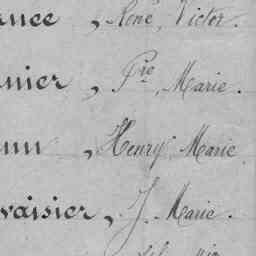 ance, René, Victor.
nier, Pre, Marie.
nn, Henry Marie
vaisier, J. Marie.